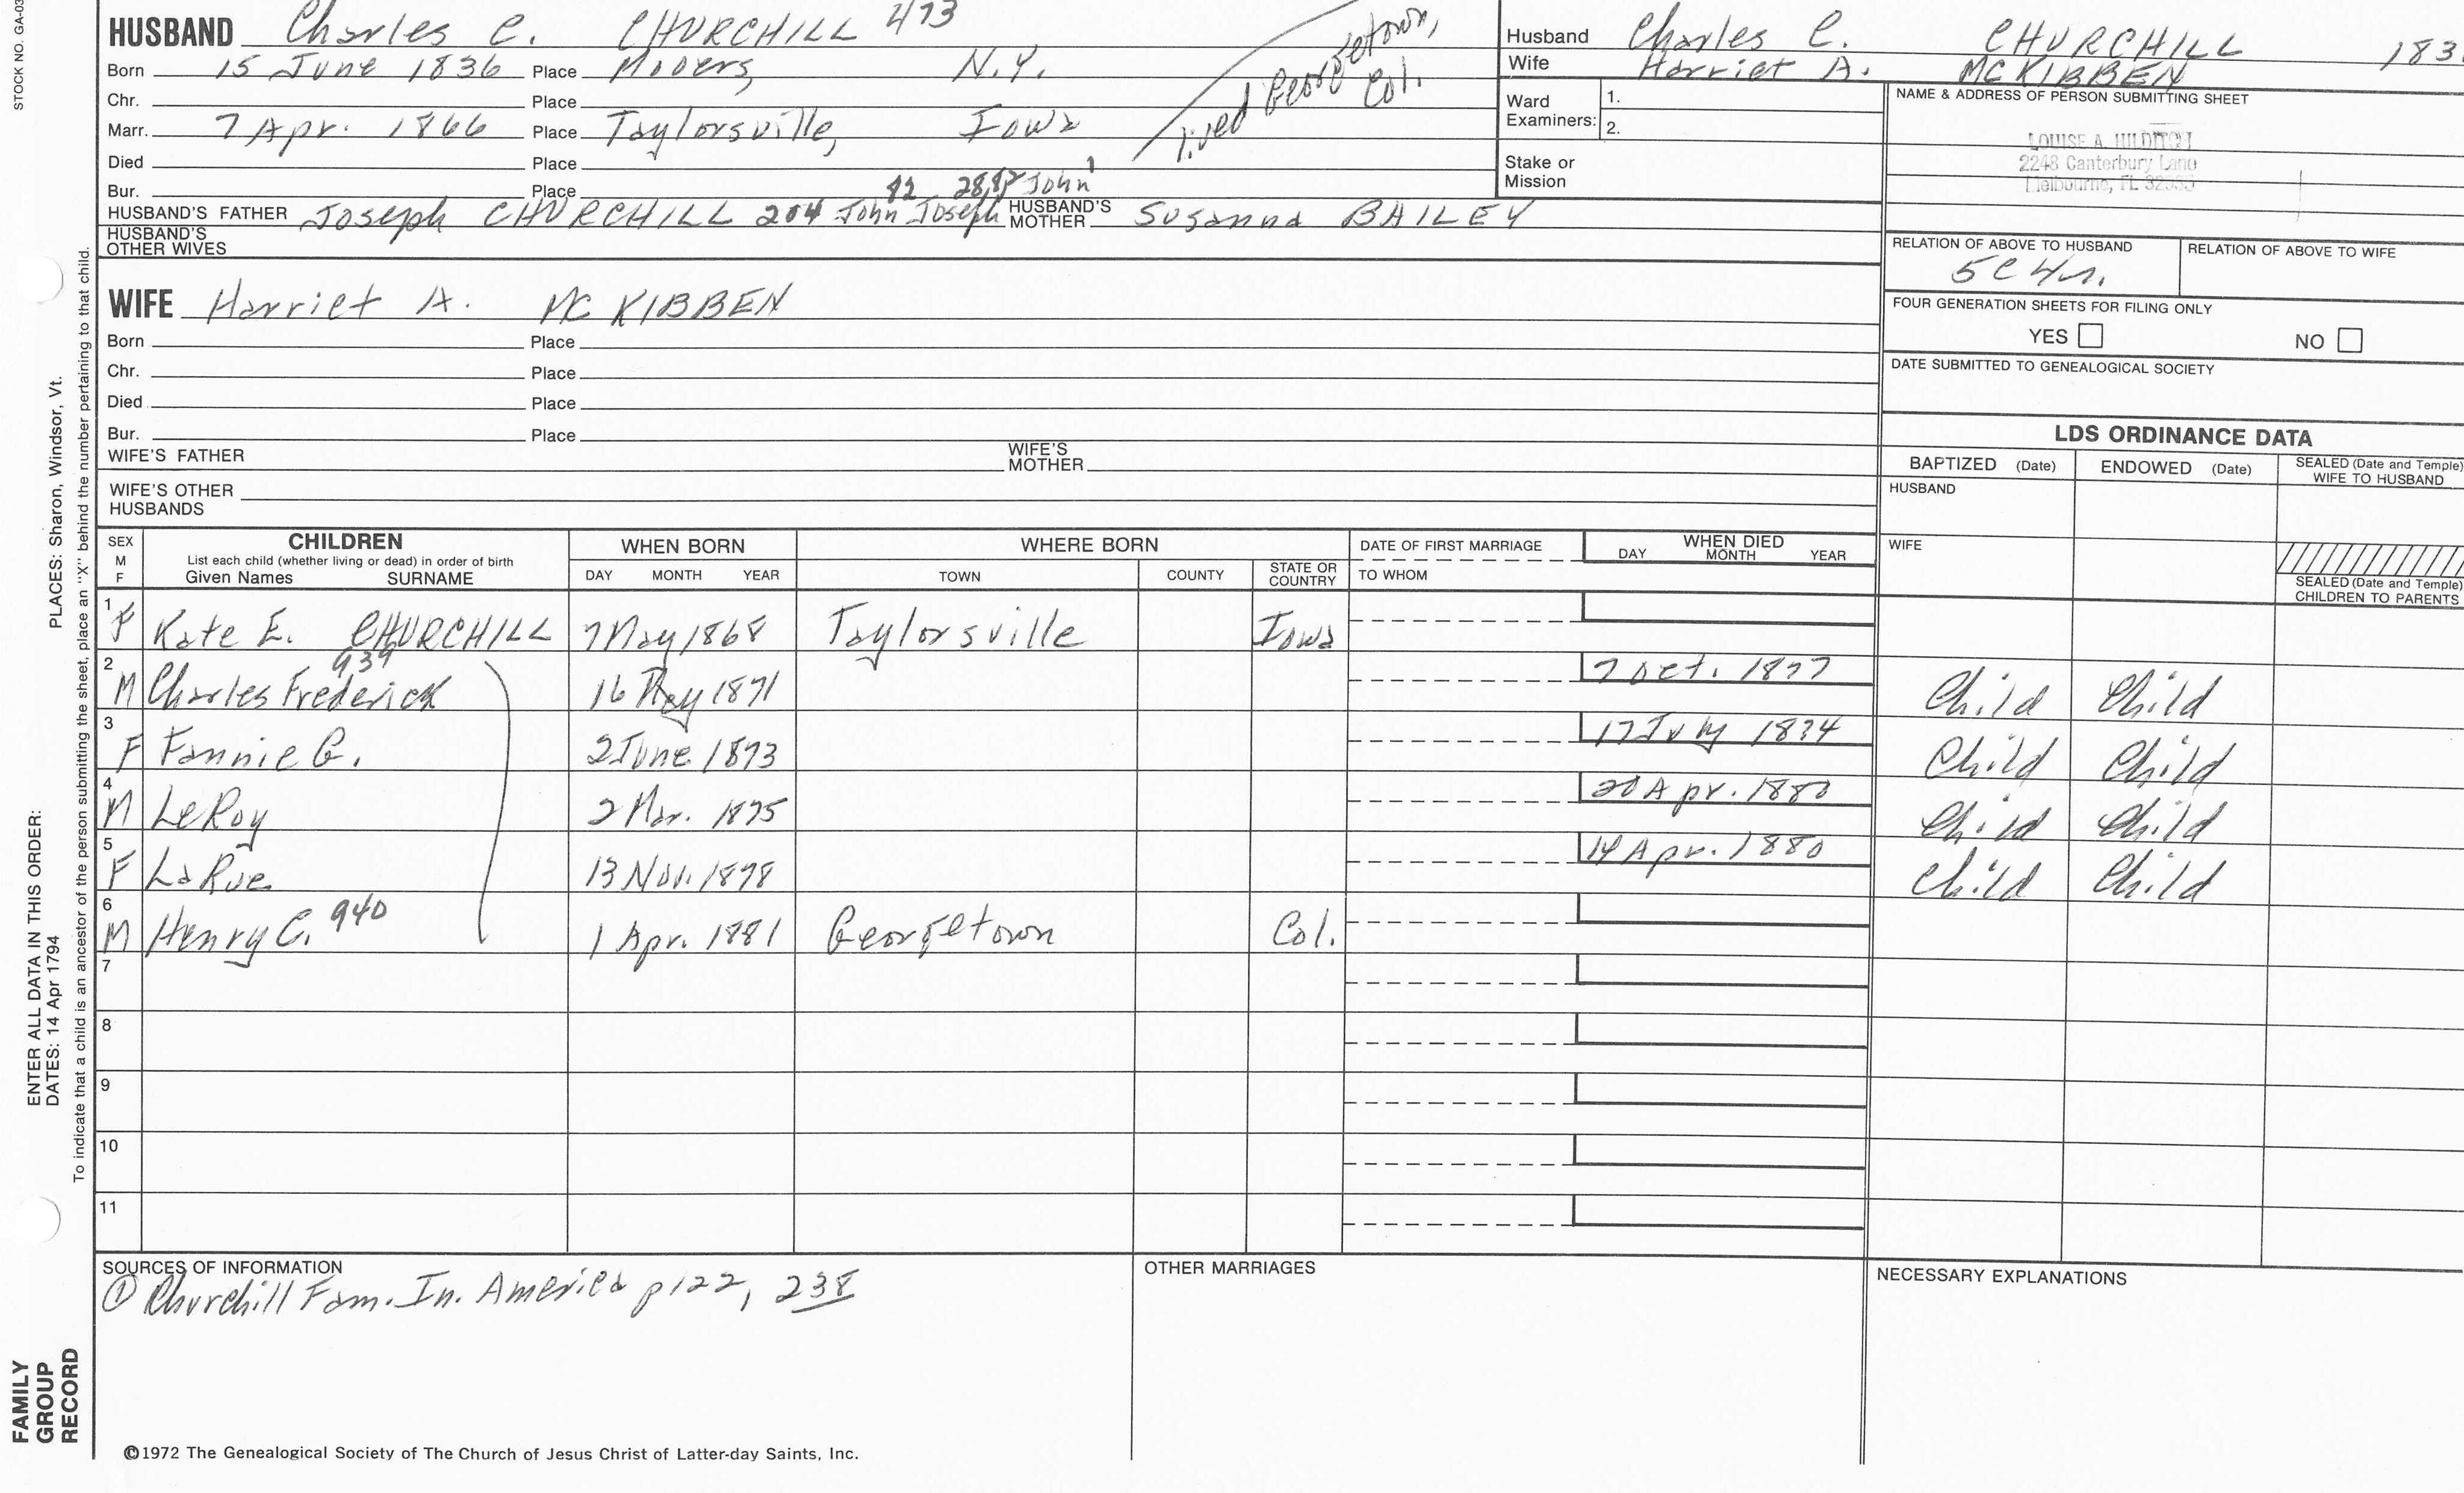 STOCK NO. GA-03
HUSBAND Charles C. CHURCHILL 473
Born 15 June 1836 Place Mooers, N.Y.
Chr. Place
Marr. 7 Apr. 1866 Place Taylorsville, Iowa
Died Place
Bur. Place
lived Georgetown, Col.
82 28, John
HUSBAND'S FATHER Joseph CHURCHILL 204 John Joseph HUSBAND'S MOTHER Susanna BAILEY
HUSBAND'S OTHER WIVES
Husband Charles C. CHURCHILL 183
Wife Harriet A. MCKIBBEN
Ward Examiners: 1.
2.
Stake or Mission
NAME & ADDRESS OF PERSON SUBMITTING SHEET
LOUISE A. HILDITCH
2248 Canterbury Lane
Melbourne, FL
RELATION OF ABOVE TO HUSBAND RELATION OF ABOVE TO WIFE
5C 4r.
FOUR GENERATION SHEETS FOR FILING ONLY
YES NO
DATE SUBMITTED TO GENEALOGICAL SOCIETY
WIFE Harriet A. MC KIBBEN
Born Place
Chr. Place
Died Place
Bur. Place
WIFE'S FATHER WIFE'S MOTHER
WIFE'S OTHER HUSBANDS
LDS ORDINANCE DATA
BAPTIZED (Date) ENDOWED (Date) SEALED (Date and Temple) WIFE TO HUSBAND
HUSBAND
WIFE
SEALED (Date and Temple) CHILDREN TO PARENTS
SEX M F CHILDREN List each child (whether living or dead) in order of birth Given Names SURNAME
WHEN BORN DAY MONTH YEAR
WHERE BORN TOWN COUNTY STATE OR COUNTRY
DATE OF FIRST MARRIAGE TO WHOM
WHEN DIED DAY MONTH YEAR
1 F Kate E. CHURCHILL 7 May 1868 Taylorsville Iowa
2 M Charles Frederick 939 16 May 1871 7 Oct. 1877 Child Child
3 F Fannie G. 2 June 1873 17 July 1874 Child Child
4 M LeRoy 2 Mar. 1875 20 Apr. 1880 Child Child
5 F LaRue 13 Nov. 1878 14 Apr. 1880 Child Child
6 M Henry C. 940 1 Apr. 1881 Georgetown Col.
7
8
9
10
11
SOURCES OF INFORMATION
① Churchill Fam. In. America p122, 238
OTHER MARRIAGES
NECESSARY EXPLANATIONS
©1972 The Genealogical Society of The Church of Jesus Christ of Latter-day Saints, Inc.
FAMILY GROUP RECORD
ENTER ALL DATA IN THIS ORDER:
DATES: 14 Apr 1794
PLACES: Sharon, Windsor, Vt.
To indicate that a child is an ancestor of the person submitting the sheet, place an "X" behind the number pertaining to that child.